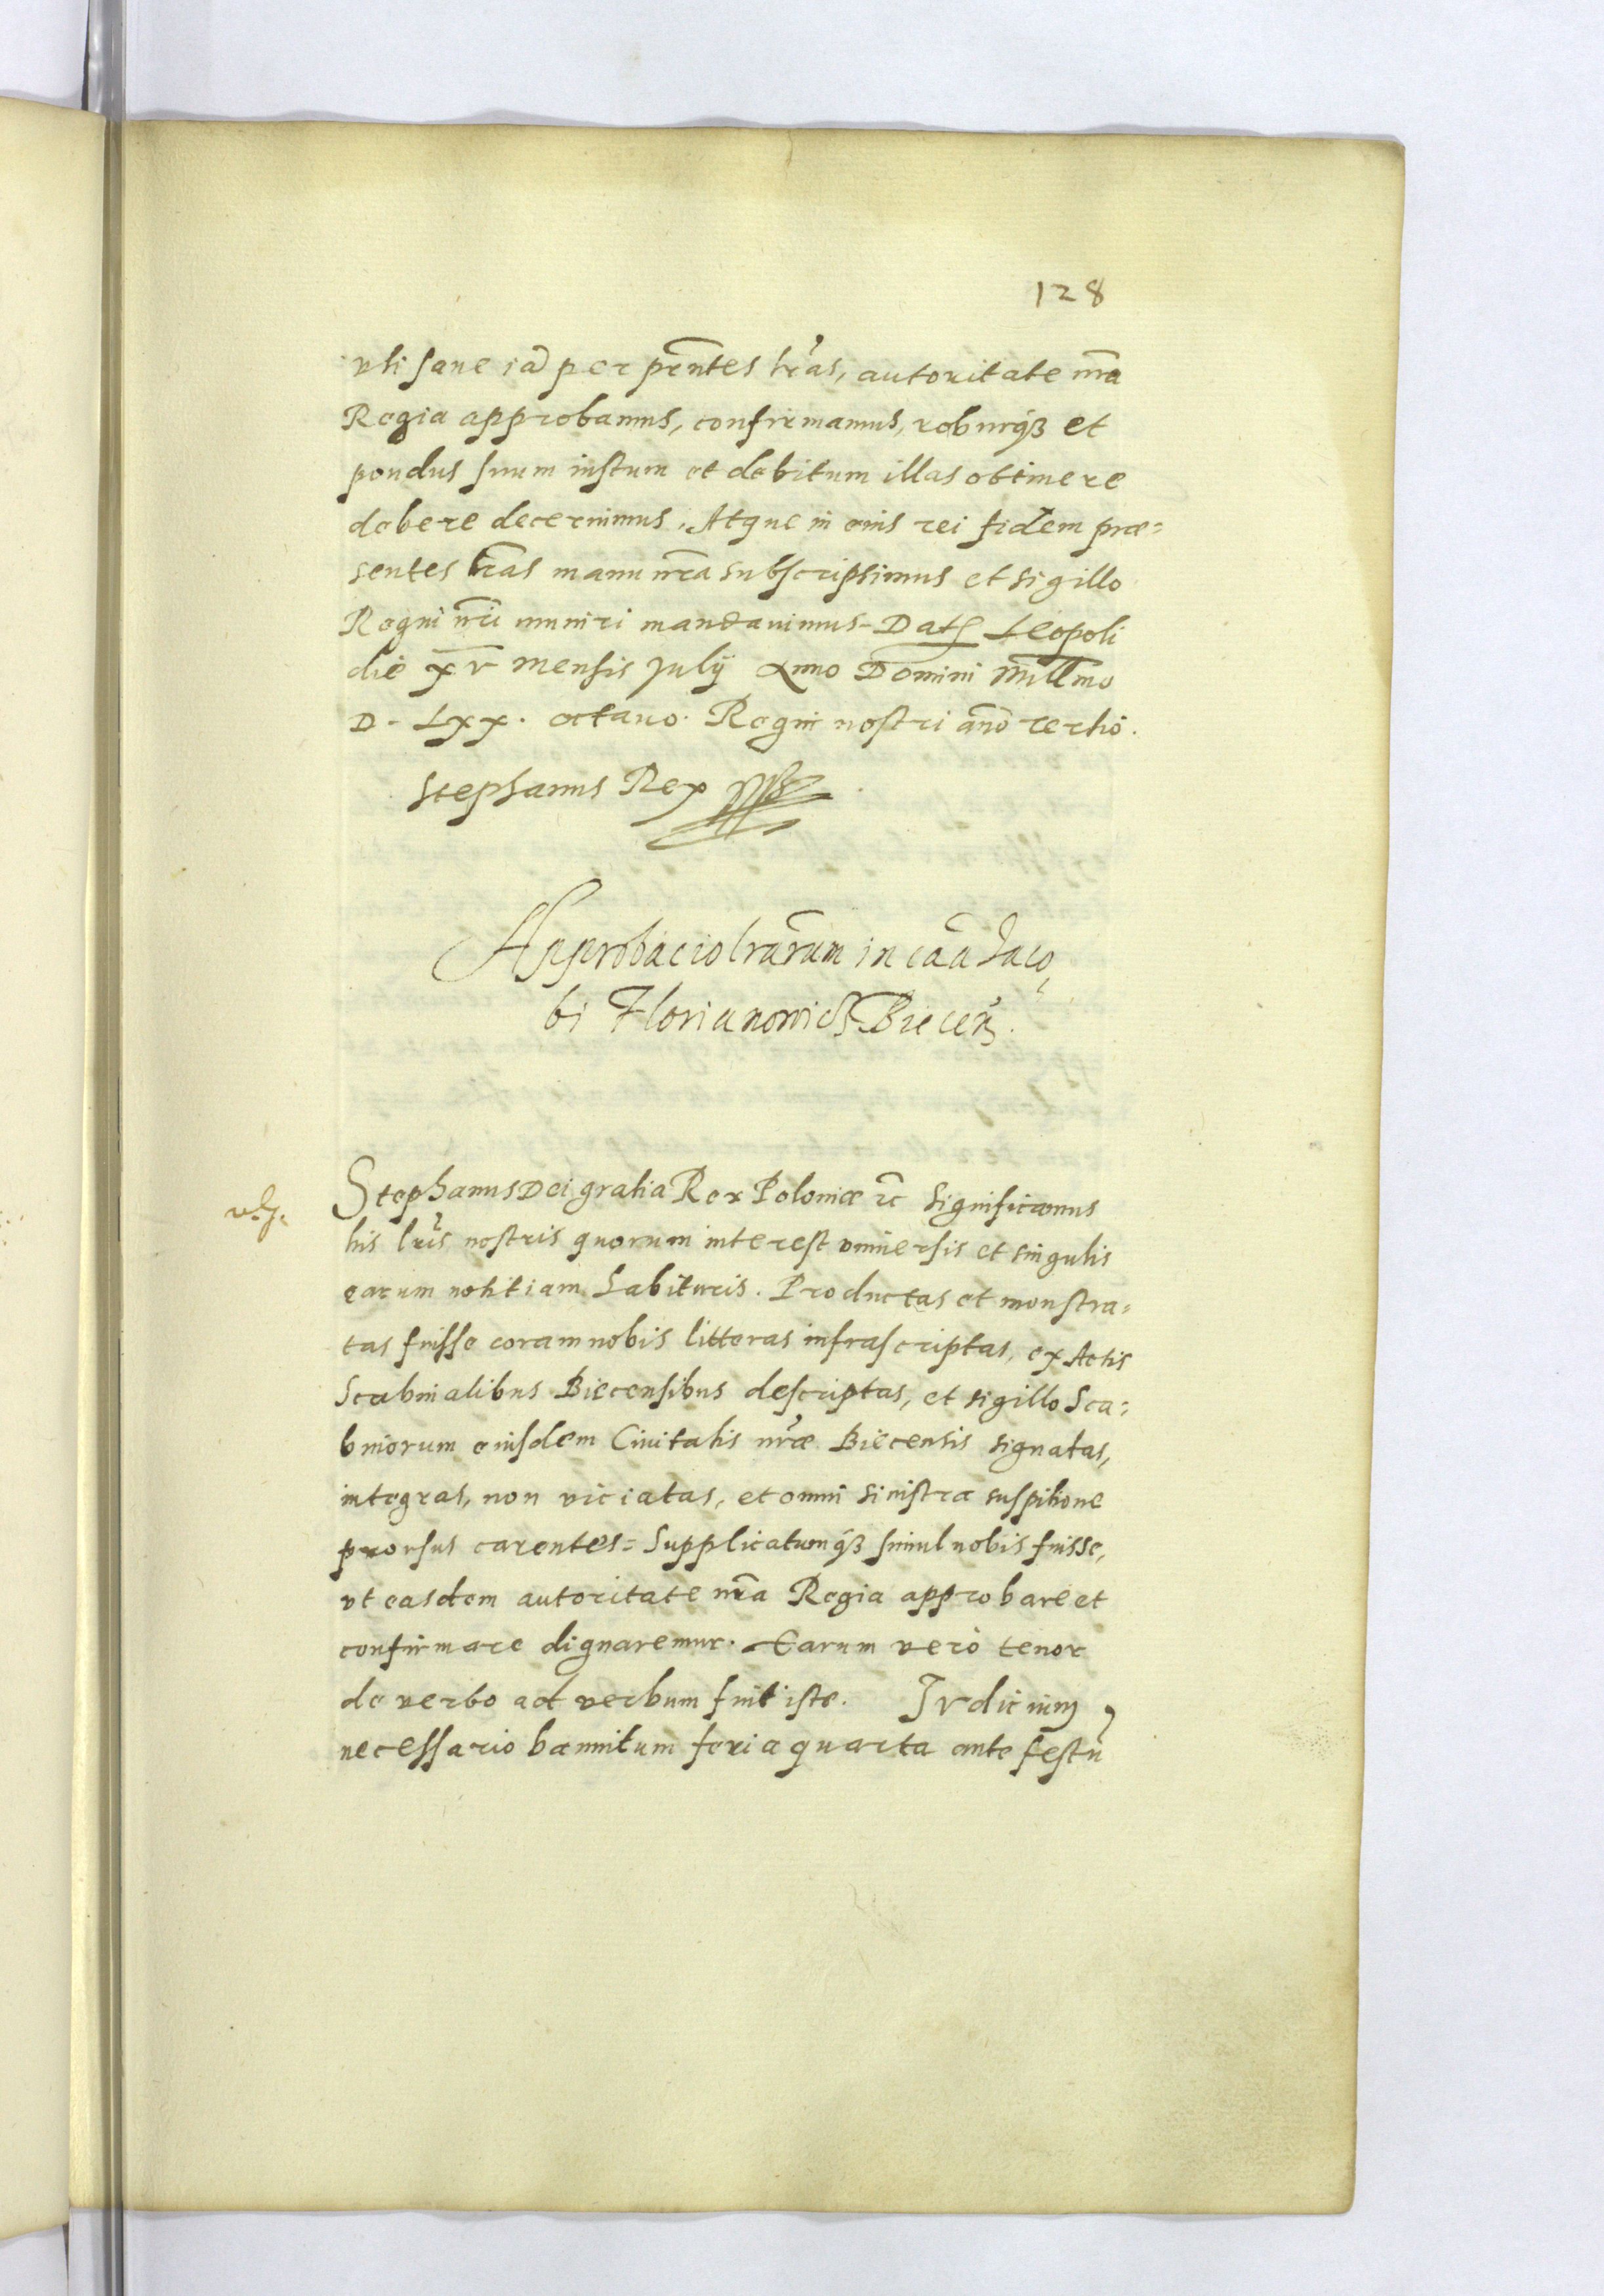 128
uti sane iã per pr̃ntes lr̃as, autoritate nr̃a
Regia approbamus, confirmamus, roburq꜄ et
pondus suum iustum et debitum illas obtinere
debere decernimus. Atque in eius rei fidem præ=
sentes lr̃as manu nr̃a subscripsimus et sigillo
Regni nr̃i muniri mandauimus. Dat: Leopoli
die xv mensis Julij Anno Domini Millmo
D. Lxx. octauo. Regni nostri añо tertio.
Stephanus Rex
Approbacio lrãrum in caã̃ Jaco
bi Florianowicz Biecen̄.
Stephanus Dei gratia Rex Poloniæ rc̃ Significamus
his lr̃is nostris quorum interest vniuersis et singulis
earum notitiam habituris. Productas et monstra=
tas fuisse coram nobis litteras infrascriptas, ex Actis
Scabinalibus Biecensibus descriptas, et sigillo Sca=
binorum eiusdem Ciuitatis nr̃æ Biecensis signatas,
integras, non viciatas, et omni sinistra suspitione
prorsus carentes= Supplicatumq꜄ simul nobis fuisse,
vt easdem autoritate nr̃a Regia approbare et
confirmare dignaremur. Earum vero tenor
de verbo ad verbum fuit iste. Iudicium
necessario bannitum feria quarta ante festũ